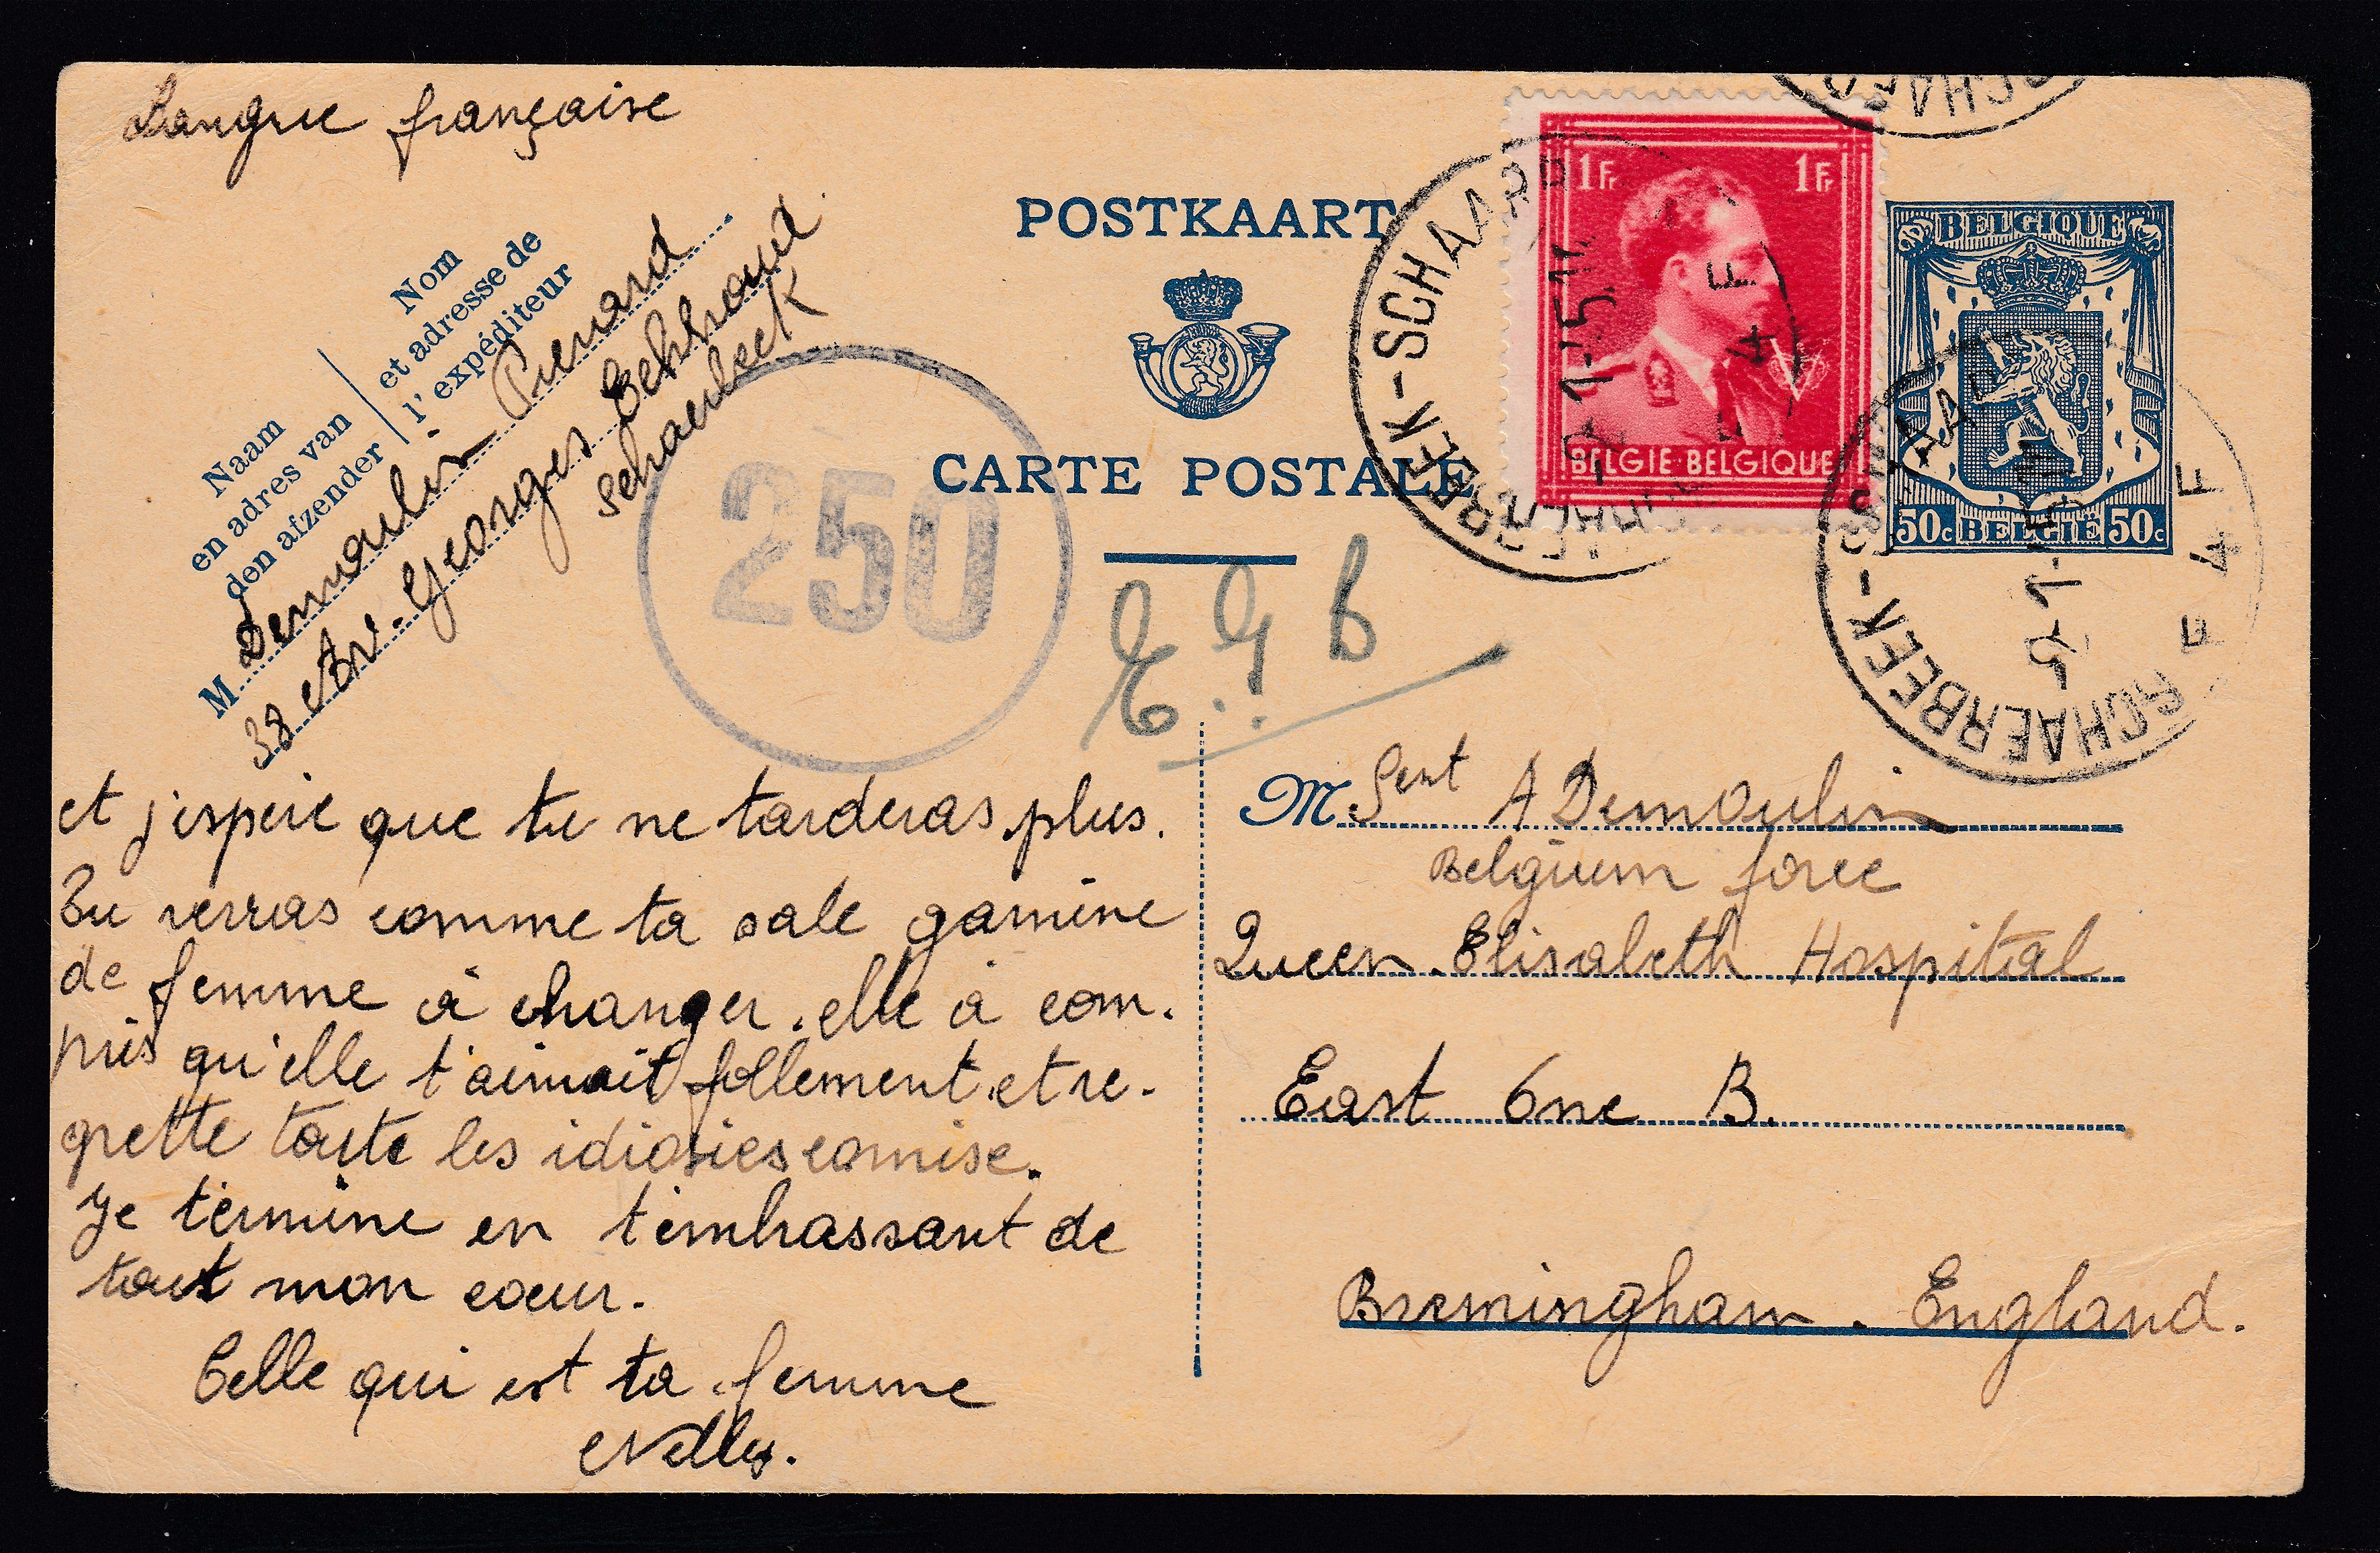 Langue française
POSTKAART
CARTE POSTALE
Naam
en adres van
den afzender
Nom
et adresse de
l'expéditeur
M Demoulin Pierard
38 Av. Georges Bethround
Schaerbeek
250
E.G.B
1Fr 1Fr
BELGIE-BELGIQUE
BELGIQUE
50c BELGIË 50c
SCHAERBEEK-SCHAARB
4 F
SCHAERBEEK-SCHAARB
4 F
et j'espère que tu ne tarderas plus.
Tu verras comme ta sale gamine
de femme à changer. elle à com.
pris qu'elle t'aimait follement et re.
grette toute les idioties comise.
Je termine en t'embrassant de
tout mon coeur.
Celle qui est ta femme
Nelly.
M Sent A Demoulin
Belgium force
Queen Elisabeth Hospital
East One B.
Bremingham. England.